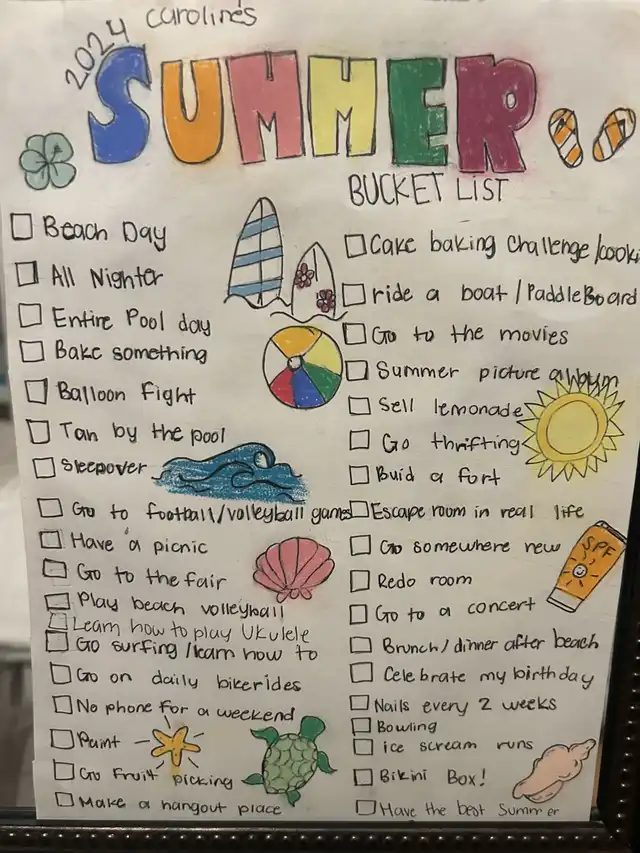 2024 Caroline's
SUMMER
BUCKET LIST
Beach Day
All Nighter
Entire Pool day
Bake something
Balloon Fight
Tan by the pool
Sleepover
Go to football/volleyball games
Have a picnic
Go to the fair
Play beach volleyball
Learn how to play Ukulele
Go surfing/learn how to
Go on daily bikerides
No phone for a weekend
Paint
Go Fruit picking
Make a hangout place
Cake baking challenge/cooki
ride a boat/PaddleBoard
Go to the movies
Summer picture album
Sell lemonade
Go thrifting
Buid a fort
Escape room in real life
Go somewhere new
SPF
Redo room
Go to a concert
Brunch/dinner after beach
Celebrate my birthday
Nails every 2 weeks
Bowling
ice scream runs
Bikini Box!
Have the best Summer